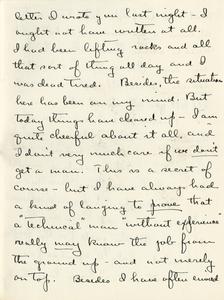 letter I wrote you last night - I
ought not have written at all.
I had been lifting racks and all
that sort of thing all day and I
was dead tired. Besides, the situation
here has been on my mind. But
today things have cleared up - I am
quite cheerful about it all, and
I don't very much care if we don't
get a man. This is a secret of
course - but I have always had
a kind of longing to prove that a
"technical" man "without experience"
really may know the job from
the ground up - and not merely
on top. Besides I have often